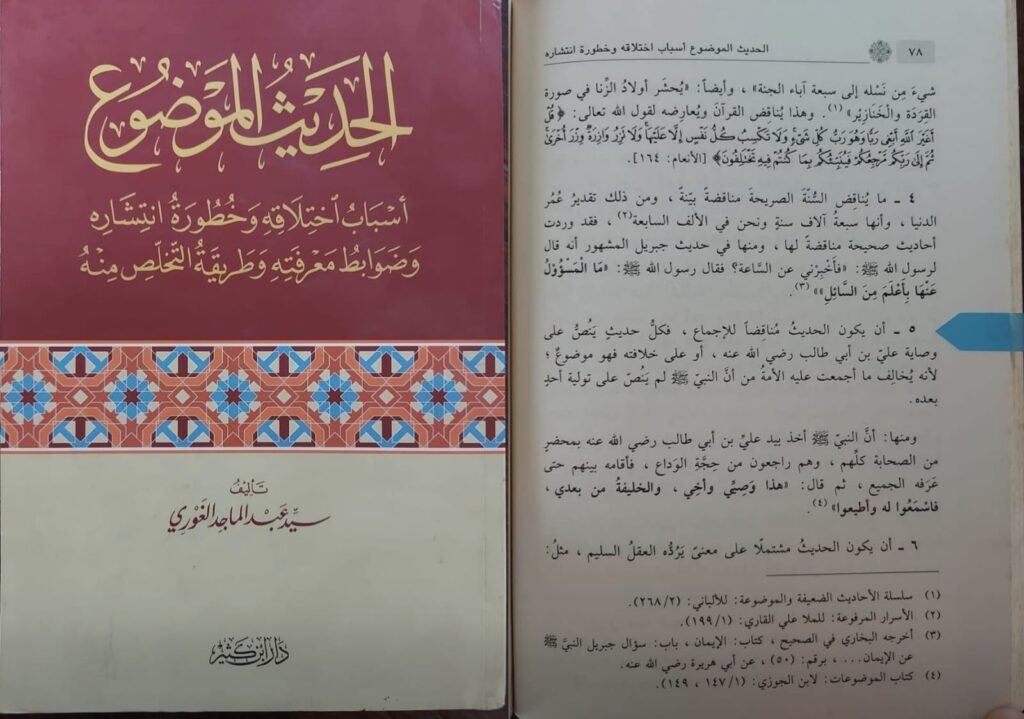 الحَدِيْثُ المَوْضُوع
أَسْبَابُ اخْتِلَاقِهِ وَخُطُورَةُ انْتِشَارِهِ
وَضَوَابِطُ مَعْرِفَتِهِ وَطَرِيقَةُ التَّخَلُّصِ مِنْهُ
تَأليفُ
سيّد عبد الماجد الغَوْري
دار ابن كثير
٧٨
الحديث الموضوع أسباب اختلاقه وخطورة انتشاره
شيءَ مِن نَسْله إلى سبعة آباء الجنة» ، وأيضاً: «يُحشَر أولادُ الزِّنا في صورة
القِرَدَة والخَنَازِيْر» (١). وهذا يُناقض القرآنَ ويُعارِضه لقول الله تعالى: ﴿قُلْ
أَغَيْرَ اللَّهِ أَبْغِي رَبًّا وَهُوَ رَبُّ كُلِّ شَيْءٍ وَلَا تَكْسِبُ كُلُّ نَفْسٍ إِلَّا عَلَيْهَا وَلَا نَزِرُ وَازِرَةٌ وِزْرَ أُخْرَى
ثُمَّ إِلَى رَبِّكُمْ مَرْجِعُكُمْ فَيُنَبِّئُكُمْ بِمَا كُنْتُمْ فِيهِ تَخْتَلِفُونَ﴾ [الأنعام: ١٦٤].
٤ ـ ما يُناقِض السُّنّةَ الصريحةَ مناقضةً بيّنةً ، ومن ذلك تقديرُ عُمُر
الدنيا ، وأنها سبعةُ آلاف سنةٍ ونحن في الألف السابعة(٢) ، فقد وردت
أحاديث صحيحة مناقضةً لها ، ومنها في حديث جبريل المشهور أنه قال
لرسول الله ﷺ: «فأَخْبِرْني عن السَّاعة؟ فقال رسول الله ﷺ: «مَا الْمَسْؤُوْلُ
عَنْهَا بِأَعْلَمَ مِنَ السَّائِلِ»» (٣).
٥ ـ أن يكون الحديثُ مُناقِضاً للإجماع ، فكلُّ حديثٍ يَنُصُّ على
وصاية عليّ بن أبي طالب رضي الله عنه ، أو على خلافته فهو موضوعٌ ؛
لأنه يُخالِف ما أجمعت عليه الأمةُ من أنَّ النبيّ ﷺ لم يَنُصّ على تولية أحدٍ
بعده .
ومنها: أنَّ النبيّ ﷺ أخذ بيد عليِّ بن أبي طالب رضي الله عنه بمحضرٍ
من الصحابة كلِّهم ، وهم راجعون من حِجَّةِ الوَداع ، فأقامه بينهم حتى
عَرَفه الجميع ، ثم قال: «هذا وَصِيِّي وأخِي ، والخليفةُ من بعدي ،
فاسْمَعُوا له وأطيعوا» (٤).
٦ ـ أن يكون الحديثُ مشتملًا على معنىً يَرُدُّه العقلُ السليم ، مثلُ:
(١) سلسلة الأحاديث الضعيفة والموضوعة: للألباني: (٢/٢٦٨).
(٢) الأسرار المرفوعة: للملا علي القاري: (١/١٩٩).
(٣) أخرجه البخاري في الصحيح ، كتاب: الإيمان ، باب: سؤال جبريل النبيَّ ﷺ
عن الإيمان... ، برقم: (٥٠) ، عن أبي هريرة رضي الله عنه.
(٤) كتاب الموضوعات: لابن الجوزي: (١/١٤٧ ، ١٤٩).